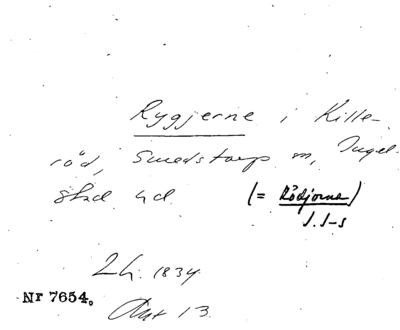 Rygjerne i Kille-
röd, Smedstorp m, Ingel-
stad hd. (= Rödjorna)
J. J-s
Lh. 1834
Nr 7654.
Akt 13